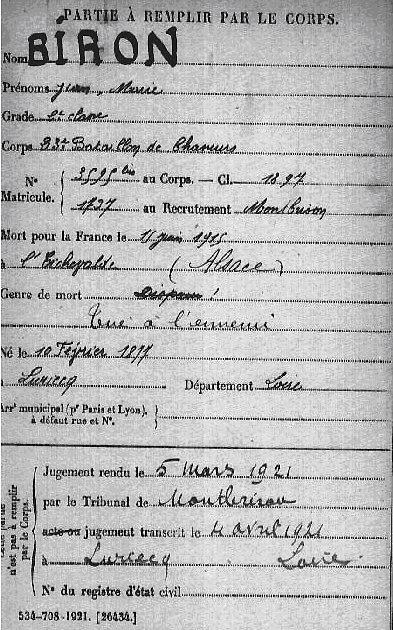 PARTIE À REMPLIR PAR LE CORPS.
Nom BIRON
Prénoms Jean, Marie
Grade 2e classe
Corps 23e Bataillon de Chasseurs
N° Matricule. { 3595 bis au Corps. — Cl. 1897
1837 au Recrutement Montbrison
Mort pour la France le 11 juin 1915
à (Alsace)
Genre de mort Disparu !
Tué à l'ennemi
Né le 10 Février 1877
à Luriecq Département Loire
Arrt municipal (pr Paris et Lyon), à défaut rue et N°.
Jugement rendu le 5 mars 1921
par le Tribunal de Montbrison
acte ou jugement transcrit le 4 avril 1921
à Luriecq Loire
N° du registre d'état civil
n'est pas à remplir par le Corps.
534-708-1921. [26434.]